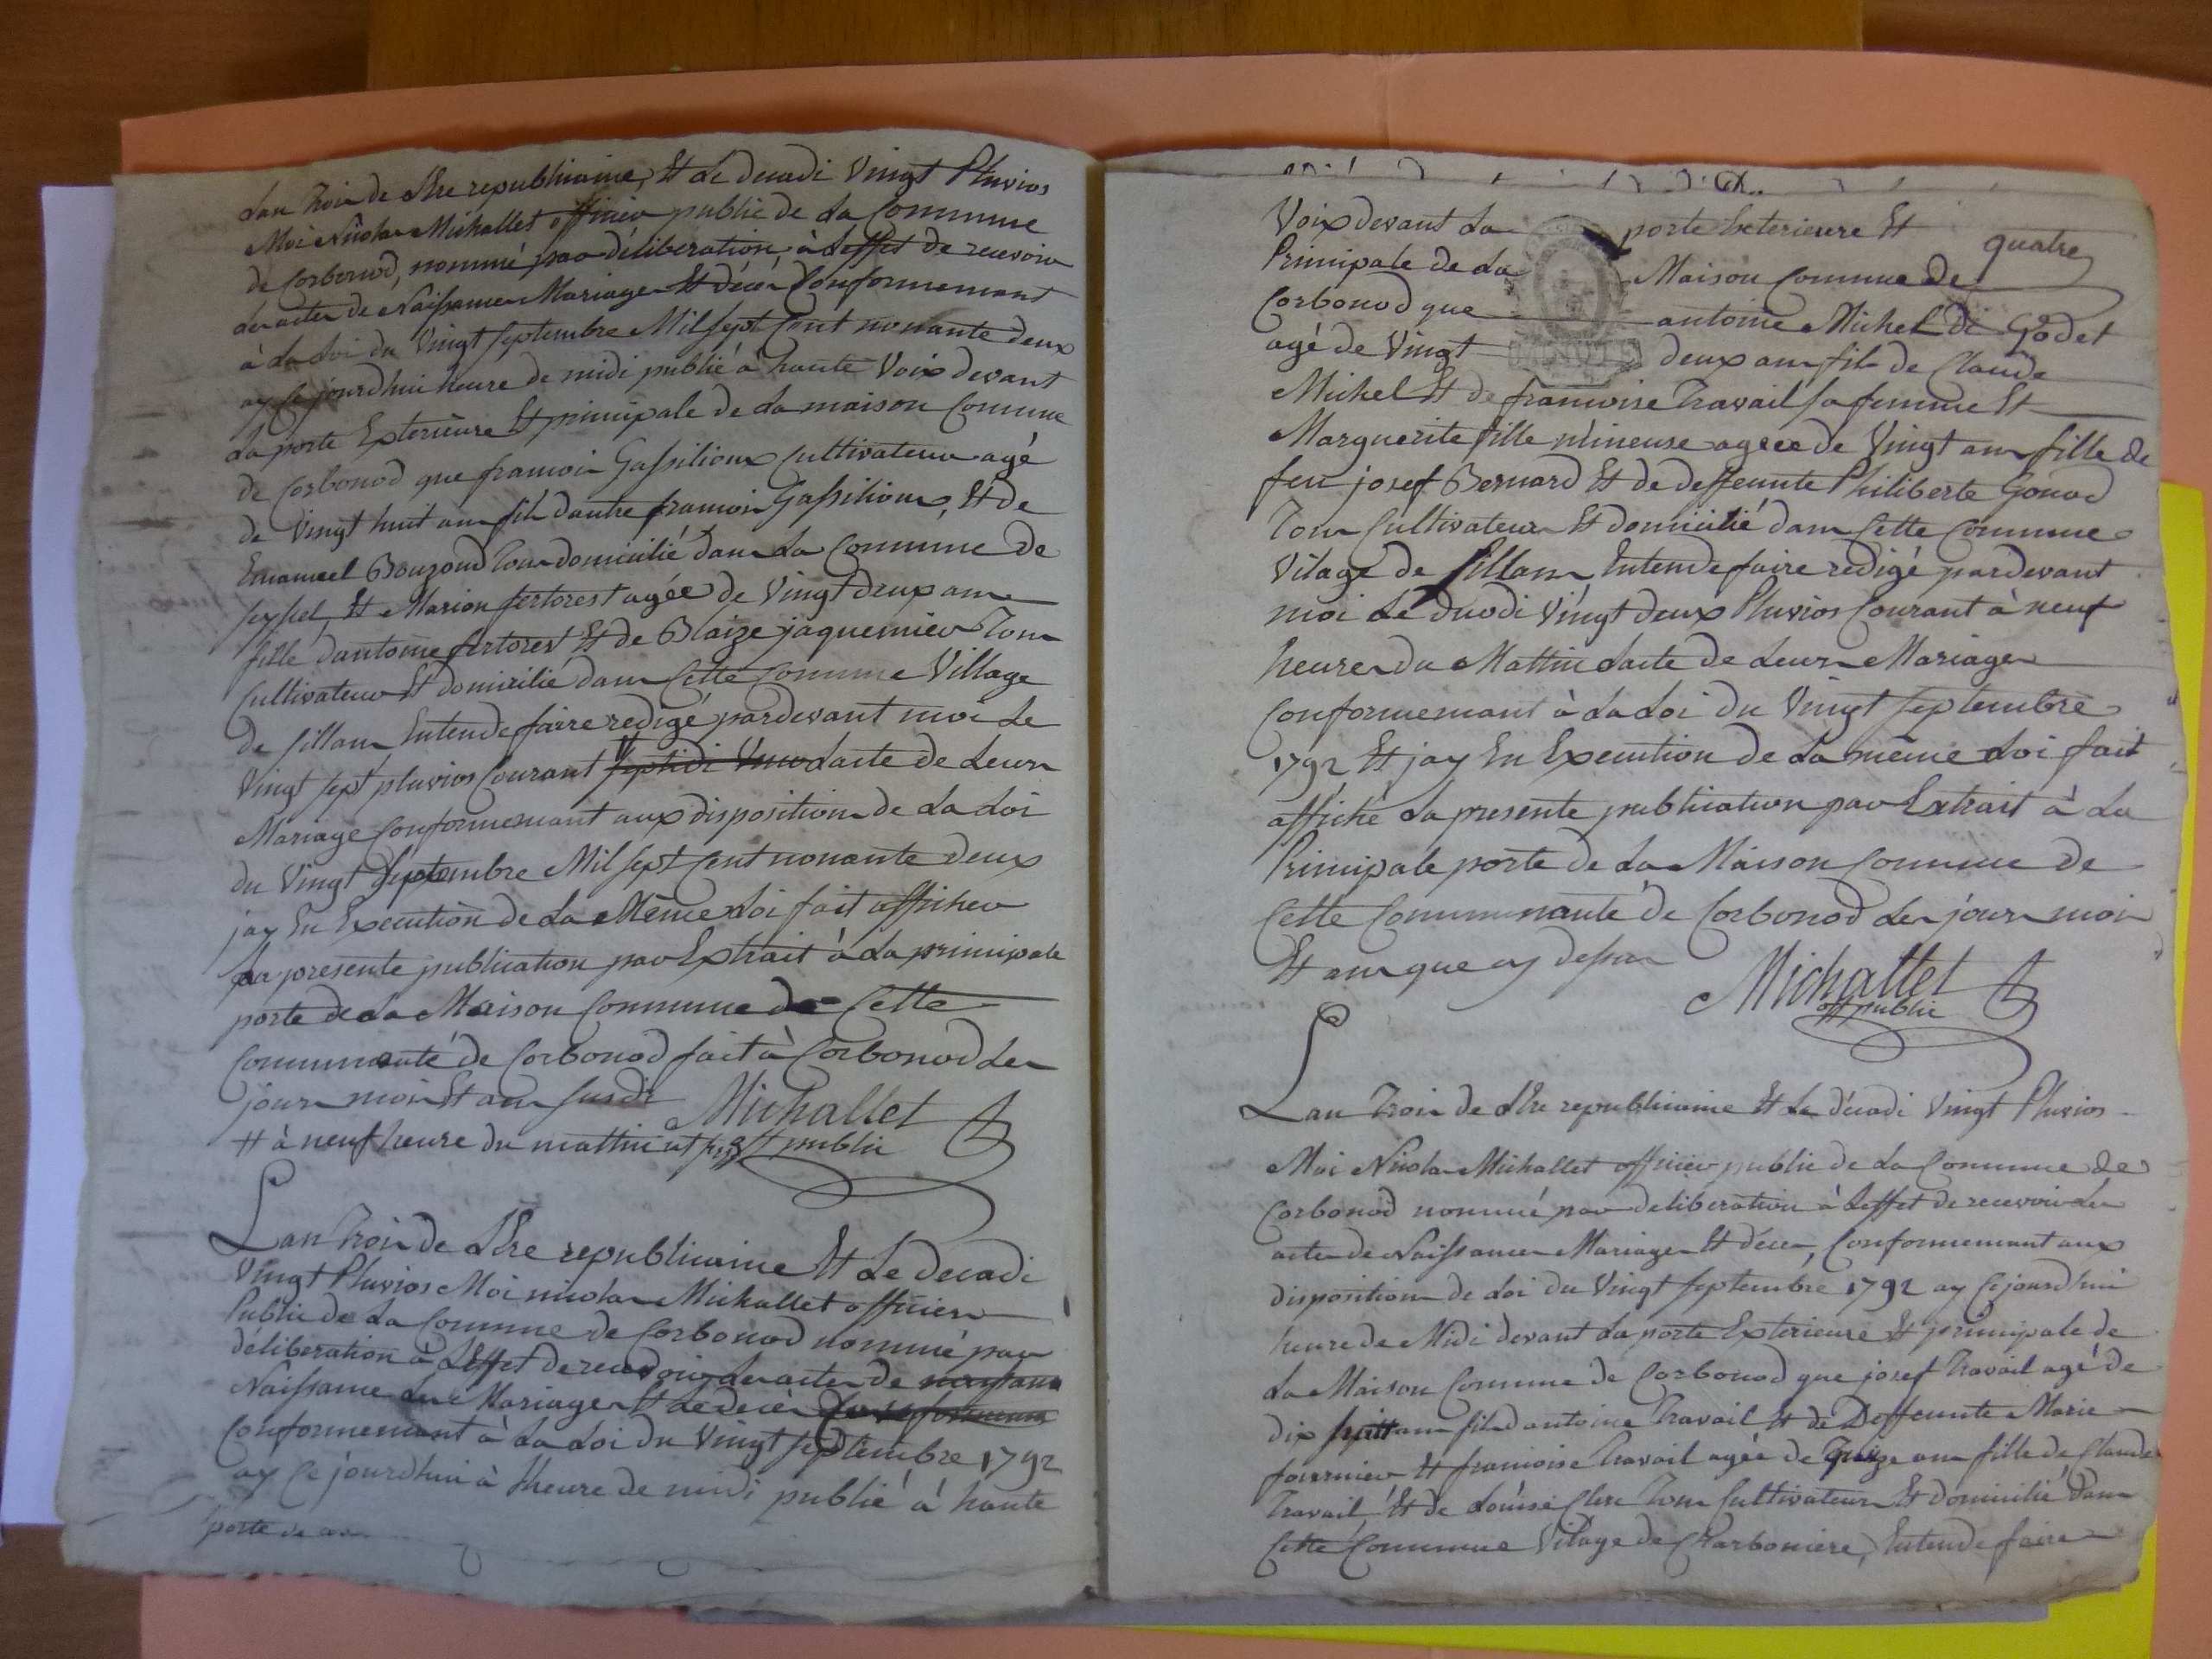 Lan trois de Lere republicaine, Et Le decadi Vingt Pluvios
Moi Nicolas Michallet officier public de La Commune
de Corbonod, nommé par déliberation, à Leffet de recevoir
Les actes de Naissances Mariages Et décès Conformemant
à La Loi du Vingt septembre Mil sept Cent nonante deux
ay Ce jourdhui heure de midi publié à haute Voix devant
La porte Exterieure Et principale de La maison Commune
de Corbonod que francois Gassilioux Cultivateur agé
de Vingt huit ans fils dautre francois Gassilioux, Et de
Emanuel Bouzoud tous domicilié dans La Commune de
seyssel, Et Marion fertorest agée de Vingt deux ans
fille dantoine fertorest Et de Blaize jaquemier Tous
Cultivateur Et domicilié dans Cette Commune Village
de sillans Entende faire redigé pardevant moi Le
Vingt sept pluvios Courant septidi Lacte de Leurs
Mariage Conformemant aux disposition de La Loi
du Vingt Septembre Mil sept Cent nonante deux
jay En Execution de La Même Loi fait afficher
La presente publication par Extrait à La principale
porte de La Maison Commune de Cette
Communauté de Corbonod fait à Corbonod Les
jours mois Et ans susdit Michallet
# à neuf heure du mattin off public
Lan trois de Lere republicaine Et Le decadi
Vingt Pluvios Moi nicolas Michallet officier
Public de La Commune de Corbonod nommé par
déliberation à Leffet de recevoir Les actes de naissance
Naissance des Mariages Et de decès
Conformemant à La Loi du Vingt septembre 1792
ay Ce jourdhui à Lheure de midi publié à haute
porte de
quatre
Voix devant La porte Exterieure Et
Principale de La Maison Commune de
Corbonod que antoine Michel di Godet
agé de Vingt deux ans fils de Claude
Michel Et de francoise Travail sa femme Et
Marguerite fille Mineuse agee de Vingt ans fille de
feu josef Bernard Et de deffeunte Philiberte Gonod
Tous Cultivateurs Et domicilié dans Cette Commune
Vilage de Sillans Entende faire redigé pardevant
moi Le duodi Vingt deux Pluvios Courant à neuf
heures du Mattin Lacte de Leurs Mariages
Conformemant à La Loi du Vingt septembre
1792 Et jay En Execution de La même Loi fait
affiché La presente publication par Extrait à La
Principale porte de La Maison Commune de
Cette Communauté de Corbonod Les jours mois
Et ans que cy dessus Michallet
off public
Lan trois de Lere republicaine Et Le décadi Vingt Pluvios
Moi Nicolas Michallet officier public de La Commune de
Corbonod nommé par deliberation à Leffet de recevoir Les
actes de Naissances Mariages Et décès, Conformemant aux
disposition de Loi du Vingt septembre 1792 ay Ce jourdhui
heure de Midi devant La porte Exterieure Et principale de
La Maison Commune de Corbonod que josef Travail agé de
dix huit ans fils dantoine Travail Et de Deffeunte Marie
fournier Et francoise Travail agée de ans fille de Claude
Travail Et de Louise Clerc Tous Cultivateurs Et domicilié dans
Cette Commune Vilage de Charboniere, Entende faire